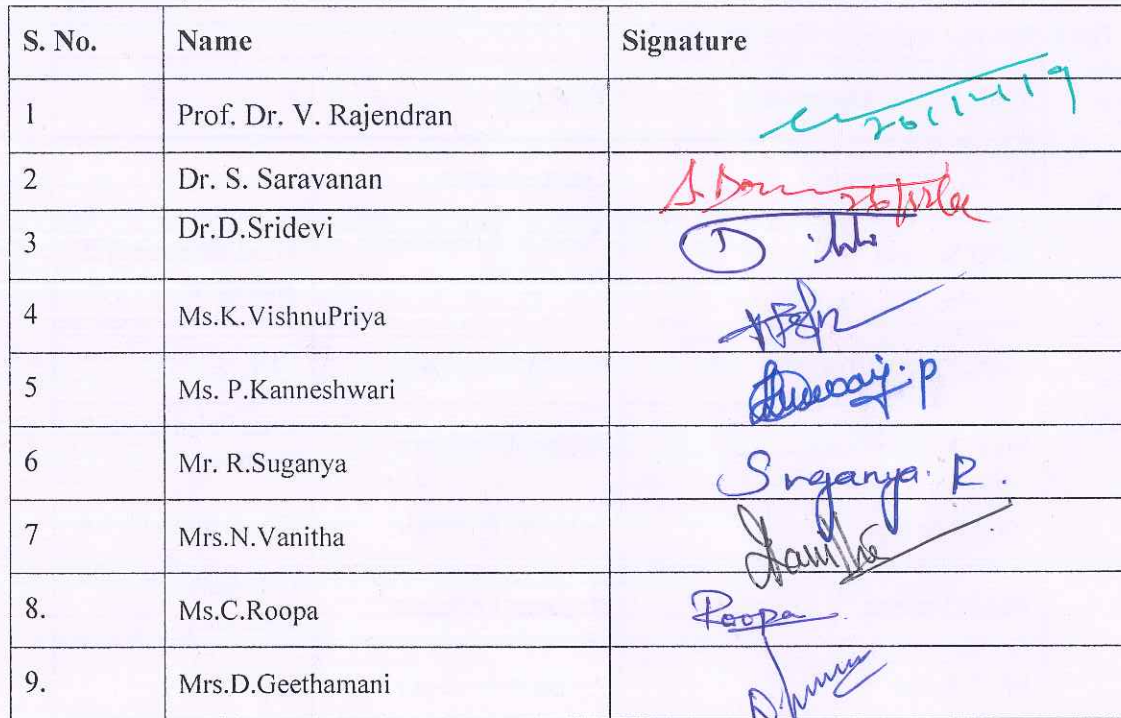 S. No. Name Signature
1 Prof. Dr. V. Rajendran
2 Dr. S. Saravanan
3 Dr.D.Sridevi
4 Ms.K.VishnuPriya
5 Ms. P.Kanneshwari
6 Mr. R.Suganya Suganya. R.
7 Mrs.N.Vanitha
8. Ms.C.Roopa Roopa
9. Mrs.D.Geethamani